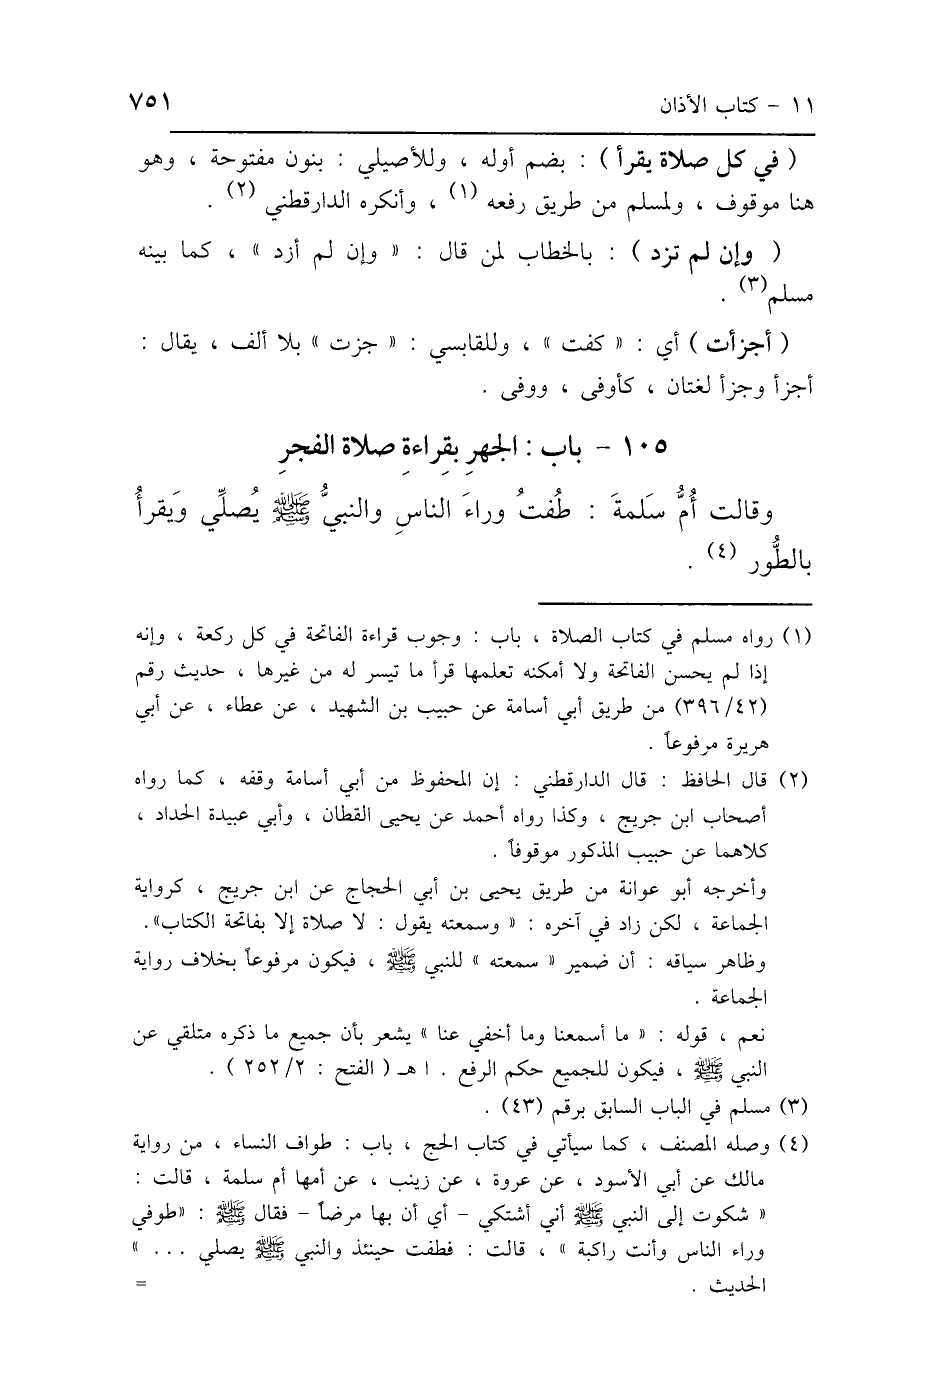 ١١ - كتاب الأذان ٧٥١
( في كل صلاة يقرأ ) : بضم أوله ، وللأصيلي : بنون مفتوحة ، وهو
هنا موقوف ، ولمسلم من طريق رفعه (١) ، وأنكره الدارقطني (٢) .
( وإن لم تزد ) : بالخطاب لمن قال : « وإن لم أزد » ، كما بينه
مسلم(٣) .
( أجزأت ) أي : « كفت » ، وللقابسي : « جزت » بلا ألف ، يقال :
أجزأ وجزأ لغتان ، كأوفى ، ووفى .
١٠٥ - باب : الجهرِ بقِراءةِ صلاة الفجرِ
وقالت أُمُّ سَلمةَ : طُفتُ وراءَ الناسِ والنبيُّ ﷺ يُصلِّي وَيَقرأُ
بالطُّور (٤) .
(١) رواه مسلم في كتاب الصلاة ، باب : وجوب قراءة الفاتحة في كل ركعة ، وإنه
إذا لم يحسن الفاتحة ولا أمكنه تعلمها قرأ ما تيسر له من غيرها ، حديث رقم
(٣٩٦/٤٢) من طريق أبي أسامة عن حبيب بن الشهيد ، عن عطاء ، عن أبي
هريرة مرفوعاً .
(٢) قال الحافظ : قال الدارقطني : إن المحفوظ من أبي أسامة وقفه ، كما رواه
أصحاب ابن جريج ، وكذا رواه أحمد عن يحيى القطان ، وأبي عبيدة الحداد ،
كلاهما عن حبيب المذكور موقوفاً .
وأخرجه أبو عوانة من طريق يحيى بن أبي الحجاج عن ابن جريج ، كرواية
الجماعة ، لكن زاد في آخره : « وسمعته يقول : لا صلاة إلا بفاتحة الكتاب».
وظاهر سياقه : أن ضمير « سمعته » للنبي ﷺ ، فيكون مرفوعاً بخلاف رواية
الجماعة .
نعم ، قوله : « ما أسمعنا وما أخفي عنا » يشعر بأن جميع ما ذكره متلقي عن
النبي ﷺ ، فيكون للجميع حكم الرفع . ا هـ ( الفتح : ٢٥٢/٢ ) .
(٣) مسلم في الباب السابق برقم (٤٣) .
(٤) وصله المصنف ، كما سيأتي في كتاب الحج ، باب : طواف النساء ، من رواية
مالك عن أبي الأسود ، عن عروة ، عن زينب ، عن أمها أم سلمة ، قالت :
« شكوت إلى النبي ﷺ أني أشتكي - أي أن بها مرضاً - فقال ﷺ : «طوفي
وراء الناس وأنت راكبة » ، قالت : فطفت حينئذ والنبي ﷺ يصلي ... »
الحديث . =